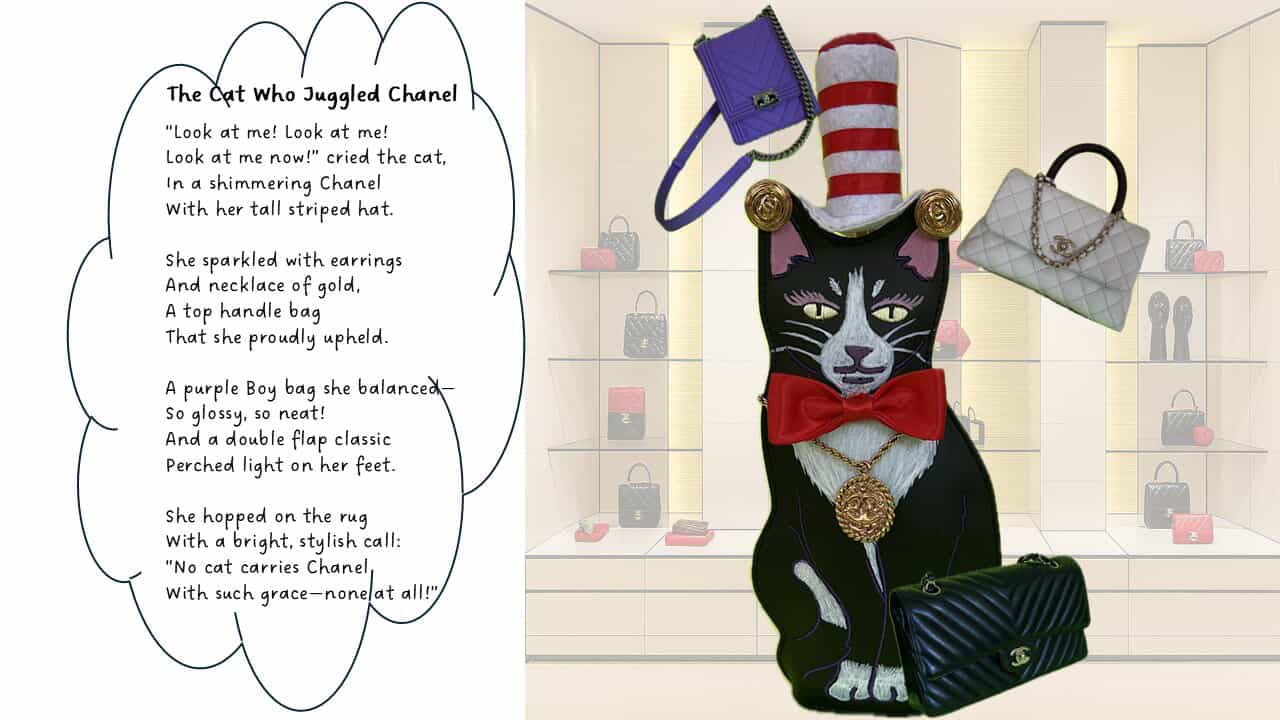 The Cat Who Juggled Chanel
"Look at me! Look at me!
Look at me now!" cried the cat,
In a shimmering Chanel
With her tall striped hat.
She sparkled with earrings
And necklace of gold,
A top handle bag
That she proudly upheld.
A purple Boy bag she balanced—
So glossy, so neat!
And a double flap classic
Perched light on her feet.
She hopped on the rug
With a bright, stylish call:
"No cat carries Chanel
With such grace—none at all!"